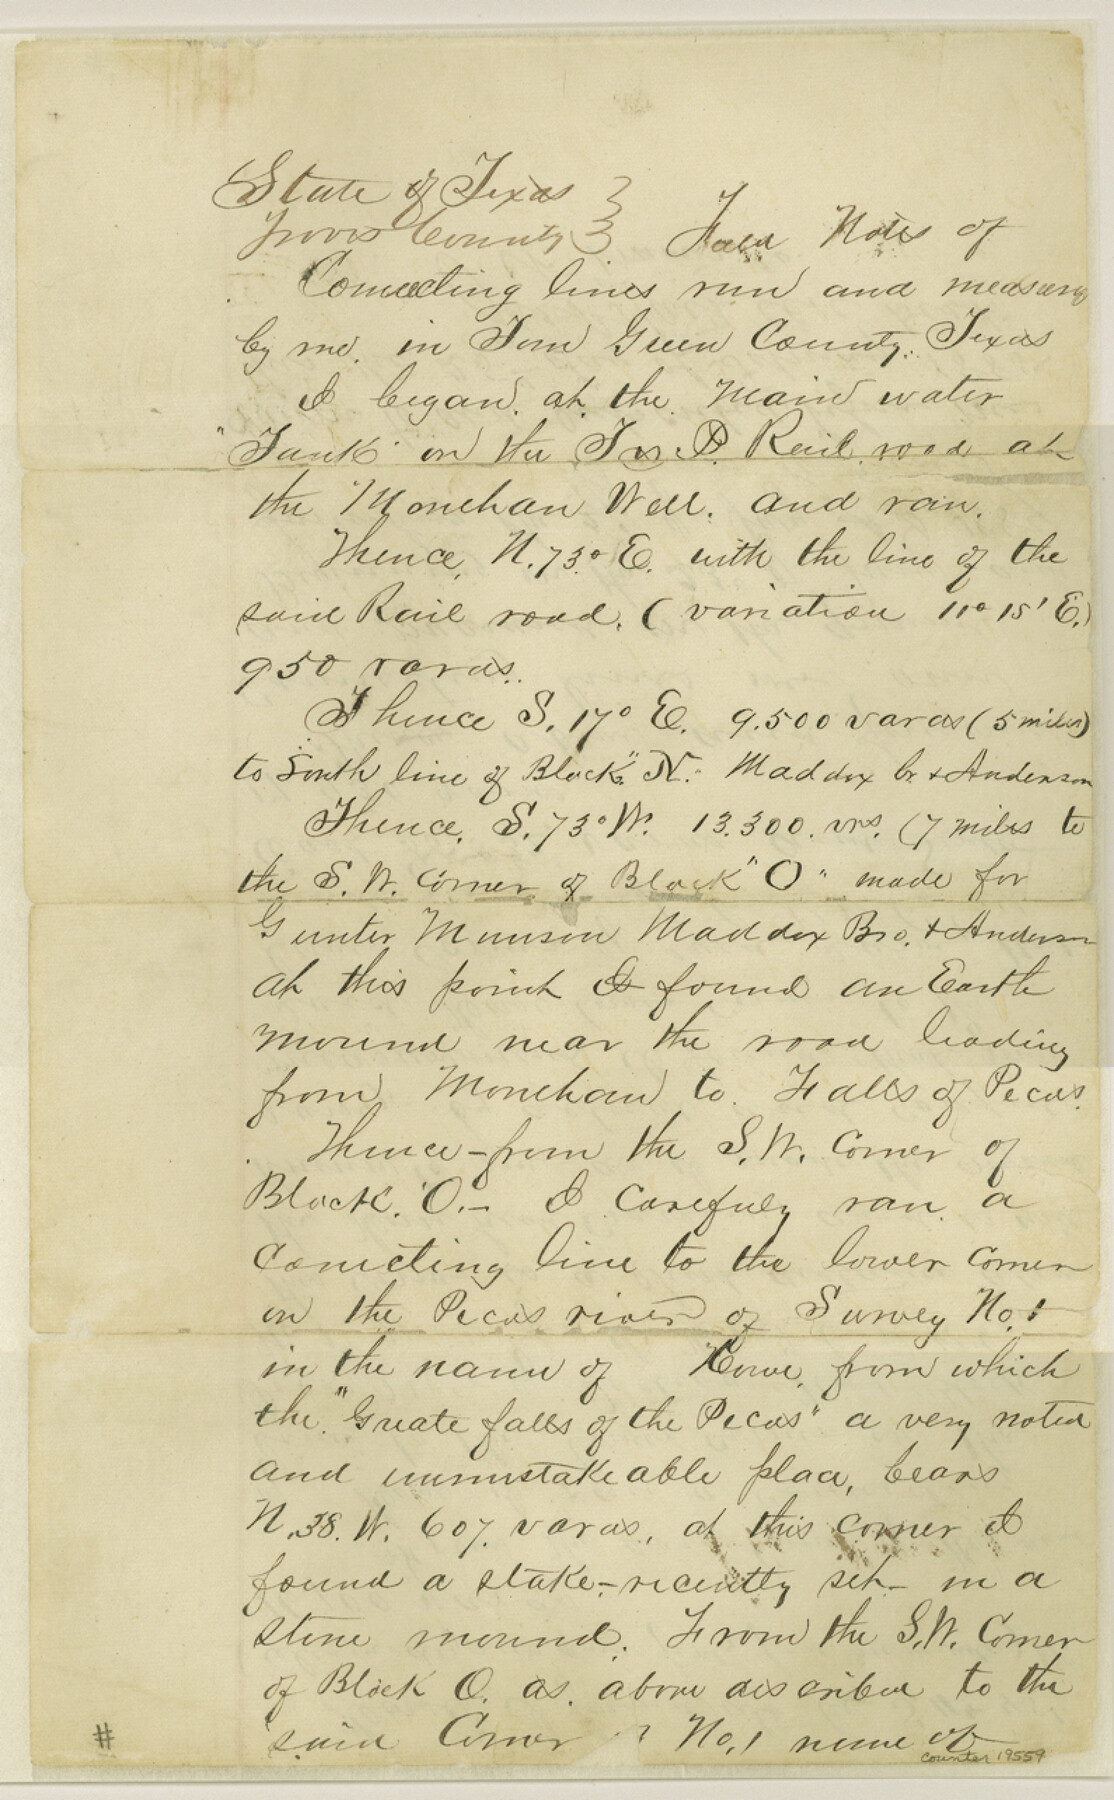 State of Texas }
Travis County } Field Notes of
Connecting lines run and measured
by me. in Tom Green County. Texas
I began. at. the. main water
"Tank" on the T. & P. Rail road at
the Monehan Well. and ran.
Thence, N. 73.° E. with the line of the
said Rail road. (variation 11° 15' E.)
950 varas.
Thence S. 17° E. 9.500 varas (5 miles)
to South line of Block "N." Maddox Br. & Anderson
Thence, S. 73° W. 13.300. vrs. (7 miles to
the S. W. Corner of Block "O" made for
Gunter Munson Maddox Bro. & Anderson
at this point I found an Earth
mound near the road leading
from Monehan to. Falls of Pecos.
Thence - from the S. W. Corner of
Block. "O. - I carefuly ran. a
conecting line to the lower corner
on the Pecos river of Survey No. 1
in the name of Howe, from which
the "Greate falls of the Pecos" a very noted
and unmistakeable place, bears
N. 38. W. 607. varas, at this corner I
found a stake - recently set - in a
stone mound. From the S. W. Corner
of Block O. as. above described to the
said Corner No. 1 name of
# counter 19559